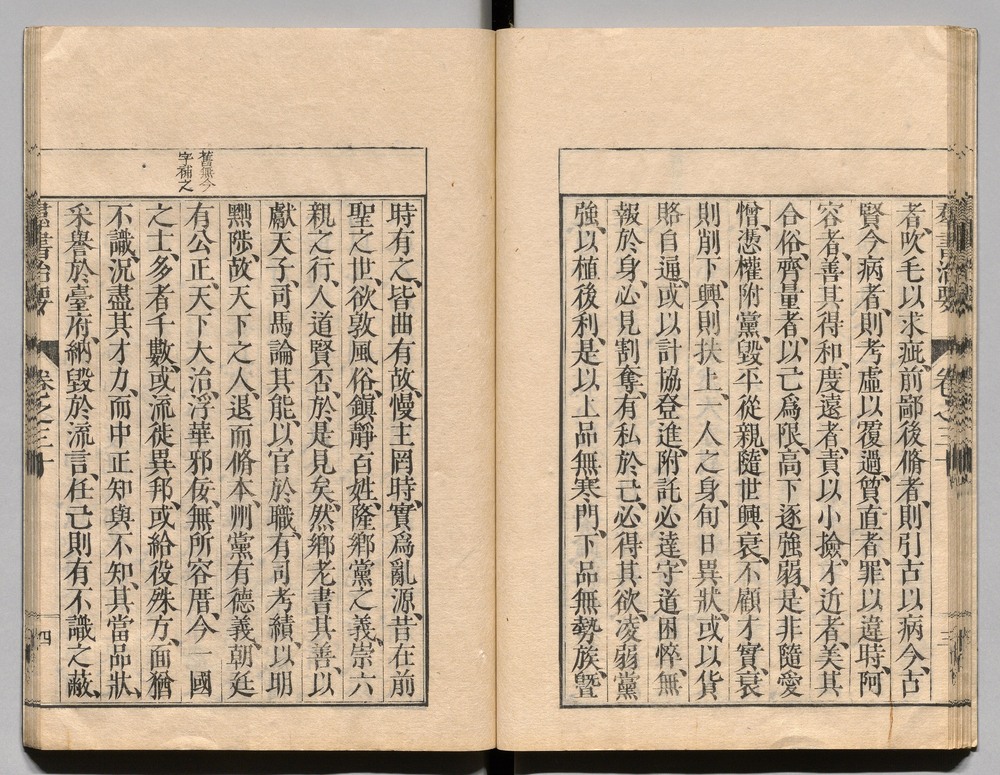 羣書治要 卷之三十 三
者、吹毛以求疵、前鄙後脩者、則引古以病今、古
賢今病者、則考虛以覆過、質直者、罪以違時、阿
容者、善其得和、度遠者、責以小撿、才近者、美其
合俗、齊量者、以己爲限、高下逐強弱、是非隨愛
憎、憑權附黨、毀平從親、隨世興衰、不顧才實、衰
則削下、興則扶上、一人之身、旬日異狀、或以貨
賂自通、或以計協登進、附託必達、守道困悴、無
報於身、必見割奪、有私於己、必得其欲、凌弱黨
強、以植後利、是以上品無寒門、下品無勢族、暨
時有之、皆曲有故、慢主罔時、實爲亂源、昔在前
聖之世、欲敦風俗、鎭靜百姓、隆鄉黨之義、崇六
親之行、人道賢否、於是見矣、然鄉老書其善、以
獻天子、司馬論其能、以官於職、有司考績、以明
黜陟、故天下之人、退而脩本、州黨有德義、朝廷
有公正、天下大治、浮華邪佞、無所容厝、今一國
之士、多者千數、或流徙異邦、或給役殊方、面猶
不識、況盡其才力、而中正知與不知、其當品狀、
釆譽於臺府、納毀於流言、任己則有不識之蔽、
舊無今
字補之
羣書治要 卷之三十 四